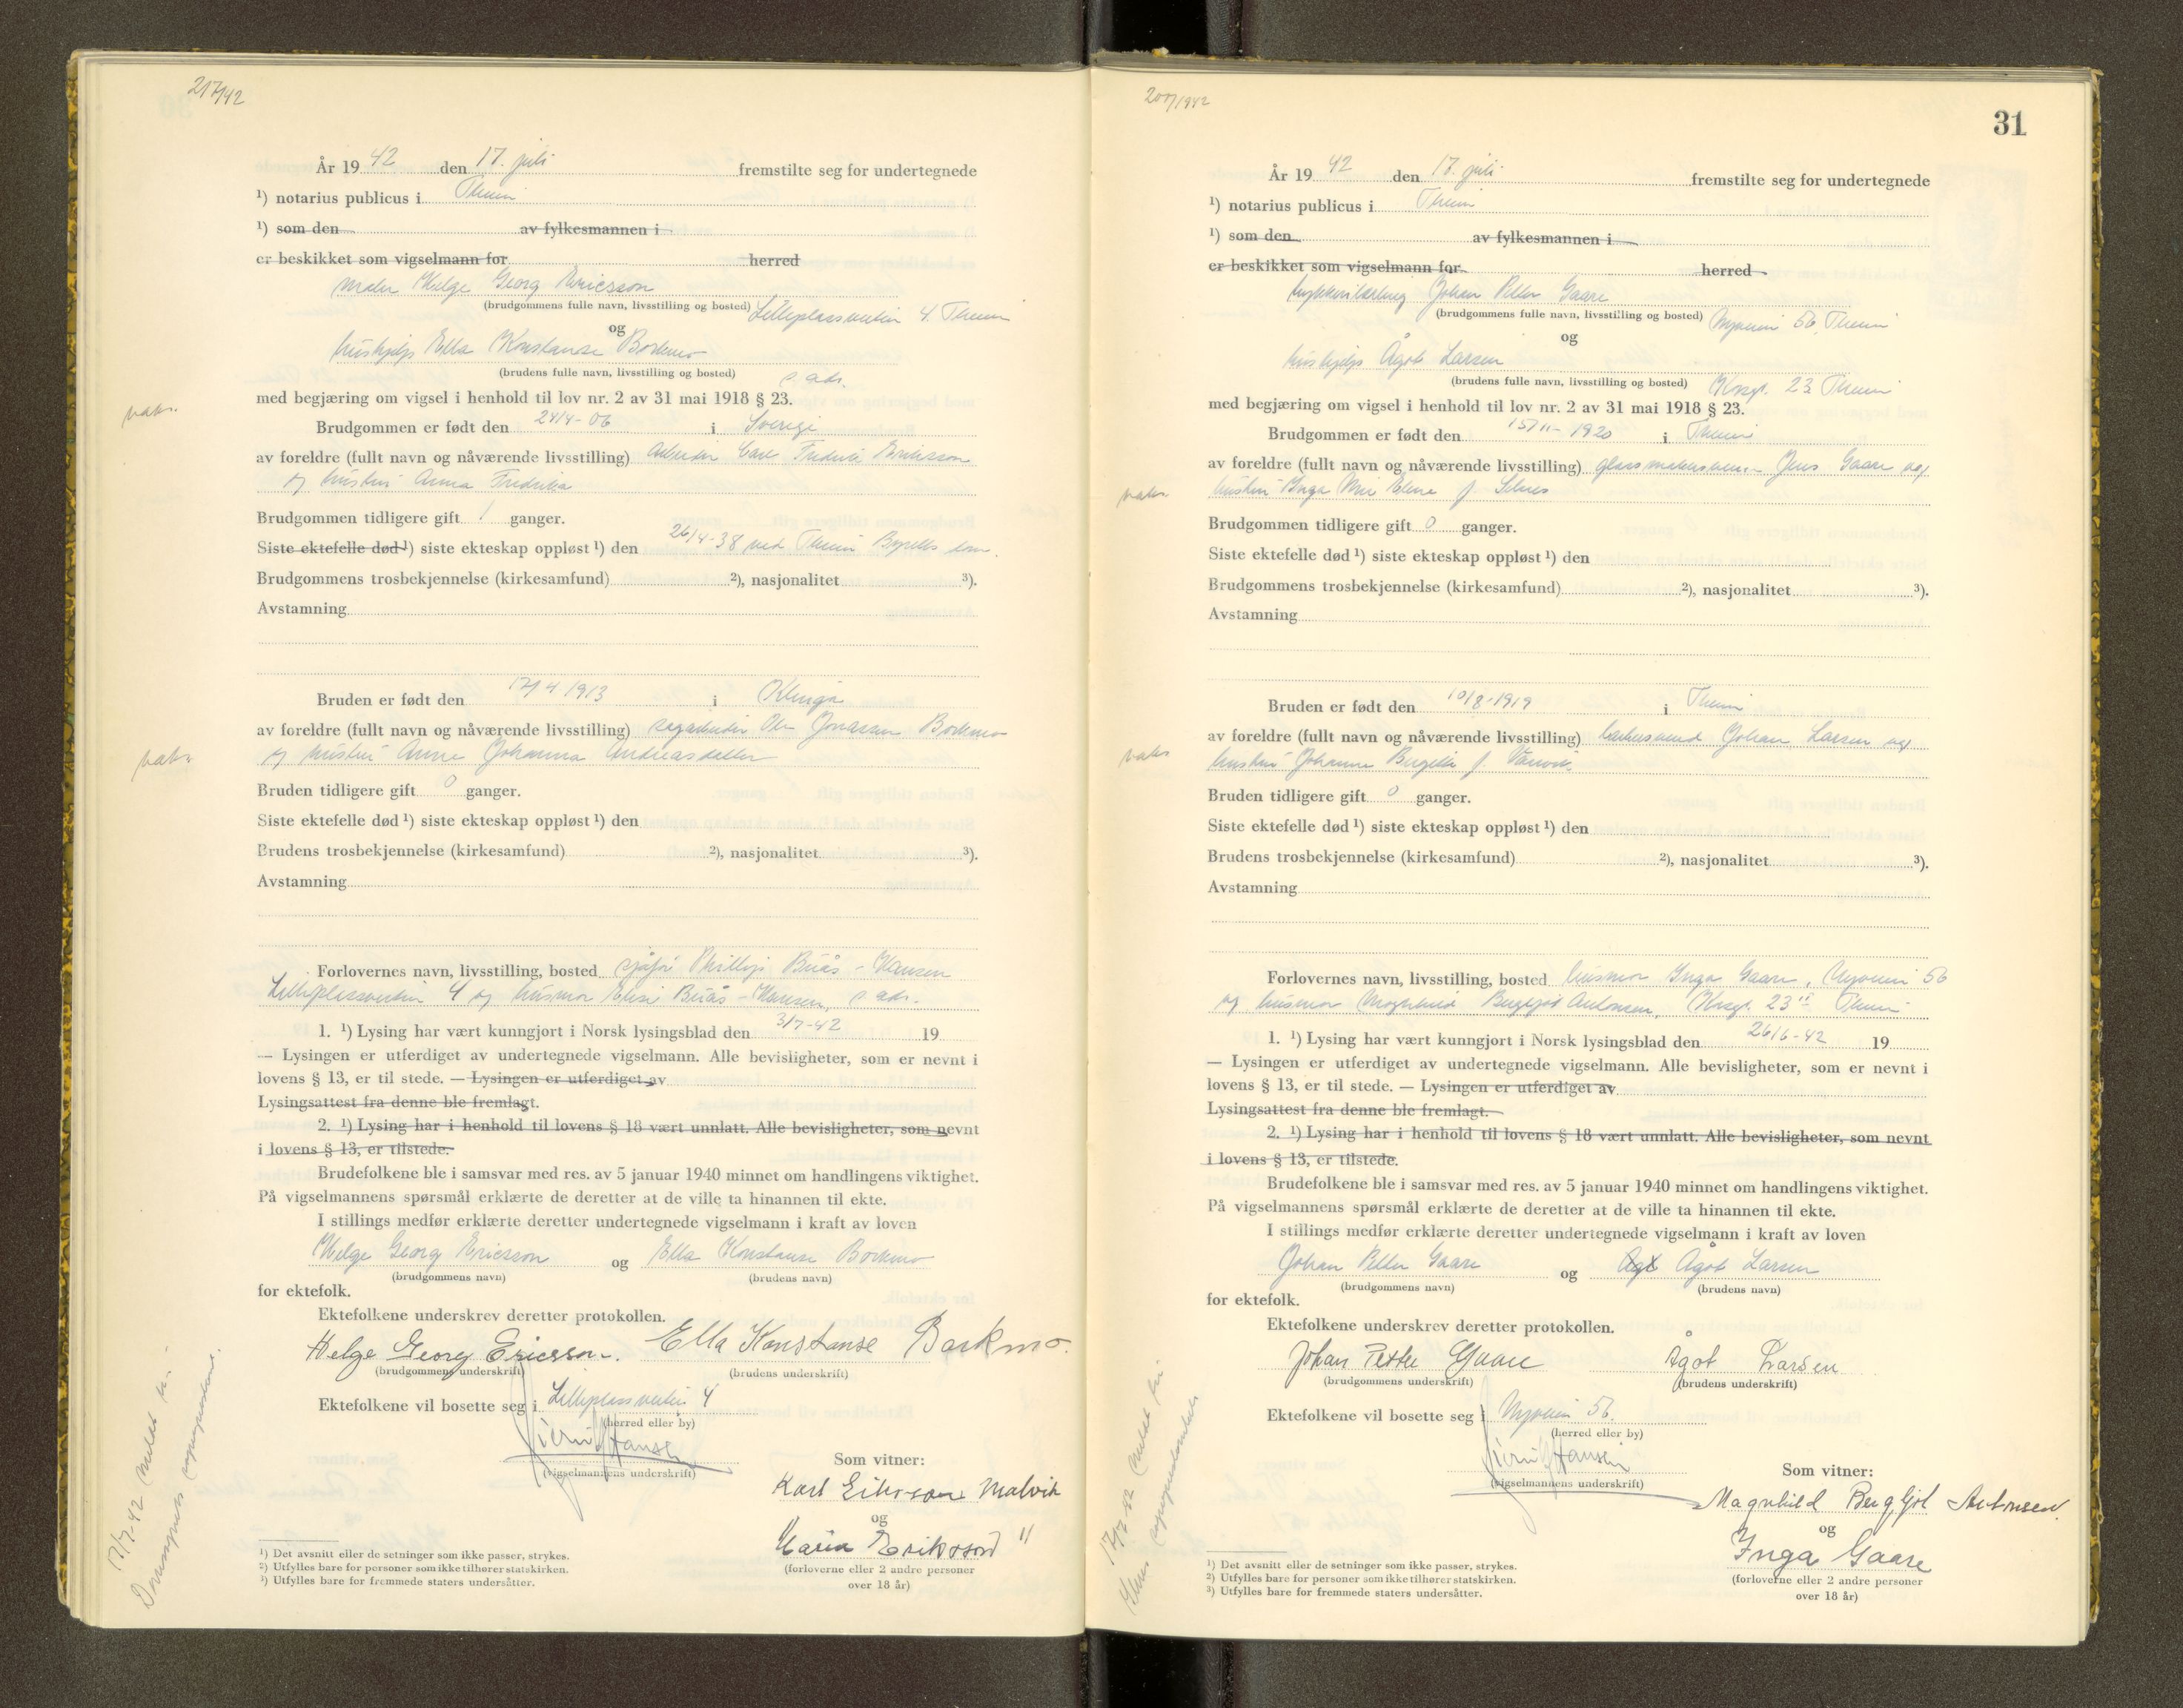 217/42
År 19 42 den 17. juli fremstilte seg for undertegnede
¹) notarius publicus i Theim
¹) som den av fylkesmannen i
er beskikket som vigselmann for herred
maler Helge Georg Ericsson
(brudgommens fulle navn, livsstilling og bosted) Lilleplassveien 4. Theim
og
hushjelp Ella Konstanse Borkmo
(brudens fulle navn, livsstilling og bosted) s. adr.
med begjæring om vigsel i henhold til lov nr. 2 av 31 mai 1918 § 23.
Brudgommen er født den 24/4-06 i Sverige
av foreldre (fullt navn og nåværende livsstilling) arbeider Carl Fredrik Eriksson
og hustru Anna Fredrika
Brudgommen tidligere gift 1 ganger.
Siste ektefelle død ¹) siste ekteskap oppløst ¹) den 26/4-38 ved Theim Byretts dom.
Brudgommens trosbekjennelse (kirkesamfund) ²), nasjonalitet ³).
Avstamning
Bruden er født den 17/4 1913 i Klinga
av foreldre (fullt navn og nåværende livsstilling) sagarbeider Ole Jonassen Borkmo
og hustru Anne Johanna Andreasdatter
Bruden tidligere gift 0 ganger.
Siste ektefelle død ¹) siste ekteskap oppløst ¹) den
Brudens trosbekjennelse (kirkesamfund) ²), nasjonalitet ³).
Avstamning
Forlovernes navn, livsstilling, bosted sjåfør Phillip Buås-Hansen
Lilleplassveien 4 og husmor Elise Buås-Hansen, s. adr.
1. ¹) Lysing har vært kunngjort i Norsk lysingsblad den 3/7-42 19
— Lysingen er utferdiget av undertegnede vigselmann. Alle bevisligheter, som er nevnt i
lovens § 13, er til stede. — Lysingen er utferdiget av
Lysingsattest fra denne ble fremlagt.
2. ¹) Lysing har i henhold til lovens § 18 vært unnlatt. Alle bevisligheter, som nevnt
i lovens § 13, er tilstede.
Brudefolkene ble i samsvar med res. av 5 januar 1940 minnet om handlingens viktighet.
På vigselmannens spørsmål erklærte de deretter at de ville ta hinannen til ekte.
I stillings medfør erklærte deretter undertegnede vigselmann i kraft av loven
Helge Georg Ericsson og Ella Konstanse Borkmo
(brudgommens navn) (brudens navn)
for ektefolk.
Ektefolkene underskrev deretter protokollen.
Helge Georg Ericsson. Ella Konstanse Borkmo.
(brudgommens underskrift) (brudens underskrift)
Ektefolkene vil bosette seg i Lilleplassveien 4
(herred eller by)
Hansen
(vigselmannens underskrift)
Som vitner:
Karl Eriksson Malvik
og
Maria Eriksson "
(forloverne eller 2 andre personer
over 18 år)
¹) Det avsnitt eller de setninger som ikke passer, strykes.
²) Utfylles bare for personer som ikke tilhører statskirken.
³) Utfylles bare for fremmede staters undersåtter.
vaks.
vaks.
17/7-42 meldt til
207/1942
31
År 19 42 den 17. juli fremstilte seg for undertegnede
¹) notarius publicus i Theim
¹) som den av fylkesmannen i
er beskikket som vigselmann for herred
Johan Petter Gaare
(brudgommens fulle navn, livsstilling og bosted) Nyveien 56, Theim
og
hushjelp Ågot Larsen
(brudens fulle navn, livsstilling og bosted) Krsgt. 23 Theim
med begjæring om vigsel i henhold til lov nr. 2 av 31 mai 1918 § 23.
Brudgommen er født den 15/11-1920 i Theim
av foreldre (fullt navn og nåværende livsstilling) Jens Gaare og
hustru Inga Elene f. Selnes
Brudgommen tidligere gift 0 ganger.
Siste ektefelle død ¹) siste ekteskap oppløst ¹) den
Brudgommens trosbekjennelse (kirkesamfund) ²), nasjonalitet ³).
Avstamning
Bruden er født den 10/8-1919 i Theim
av foreldre (fullt navn og nåværende livsstilling) Johan Larsen og
hustru Johanne Bergitte f.
Bruden tidligere gift 0 ganger.
Siste ektefelle død ¹) siste ekteskap oppløst ¹) den
Brudens trosbekjennelse (kirkesamfund) ²), nasjonalitet ³).
Avstamning
Forlovernes navn, livsstilling, bosted husmor Inga Gaare, Nyveien 56
og husmor Magnhild Bergljot Antonsen, Krsgt. 23 II Theim
1. ¹) Lysing har vært kunngjort i Norsk lysingsblad den 26/6-42 19
— Lysingen er utferdiget av undertegnede vigselmann. Alle bevisligheter, som er nevnt i
lovens § 13, er til stede. — Lysingen er utferdiget av
Lysingsattest fra denne ble fremlagt.
2. ¹) Lysing har i henhold til lovens § 18 vært unnlatt. Alle bevisligheter, som nevnt
i lovens § 13, er tilstede.
Brudefolkene ble i samsvar med res. av 5 januar 1940 minnet om handlingens viktighet.
På vigselmannens spørsmål erklærte de deretter at de ville ta hinannen til ekte.
I stillings medfør erklærte deretter undertegnede vigselmann i kraft av loven
Johan Petter Gaare og Agt Ågot Larsen
(brudgommens navn) (brudens navn)
for ektefolk.
Ektefolkene underskrev deretter protokollen.
Johan Petter Gaare Ågot Larsen
(brudgommens underskrift) (brudens underskrift)
Ektefolkene vil bosette seg i Nyveien 56.
(herred eller by)
Hansen
(vigselmannens underskrift)
Som vitner:
Magnhild Bergljot Antonsen.
og
Inga Gaare
(forloverne eller 2 andre personer
over 18 år)
¹) Det avsnitt eller de setninger som ikke passer, strykes.
²) Utfylles bare for personer som ikke tilhører statskirken.
³) Utfylles bare for fremmede staters undersåtter.
vaks.
vaks
17/7-42 meldt til